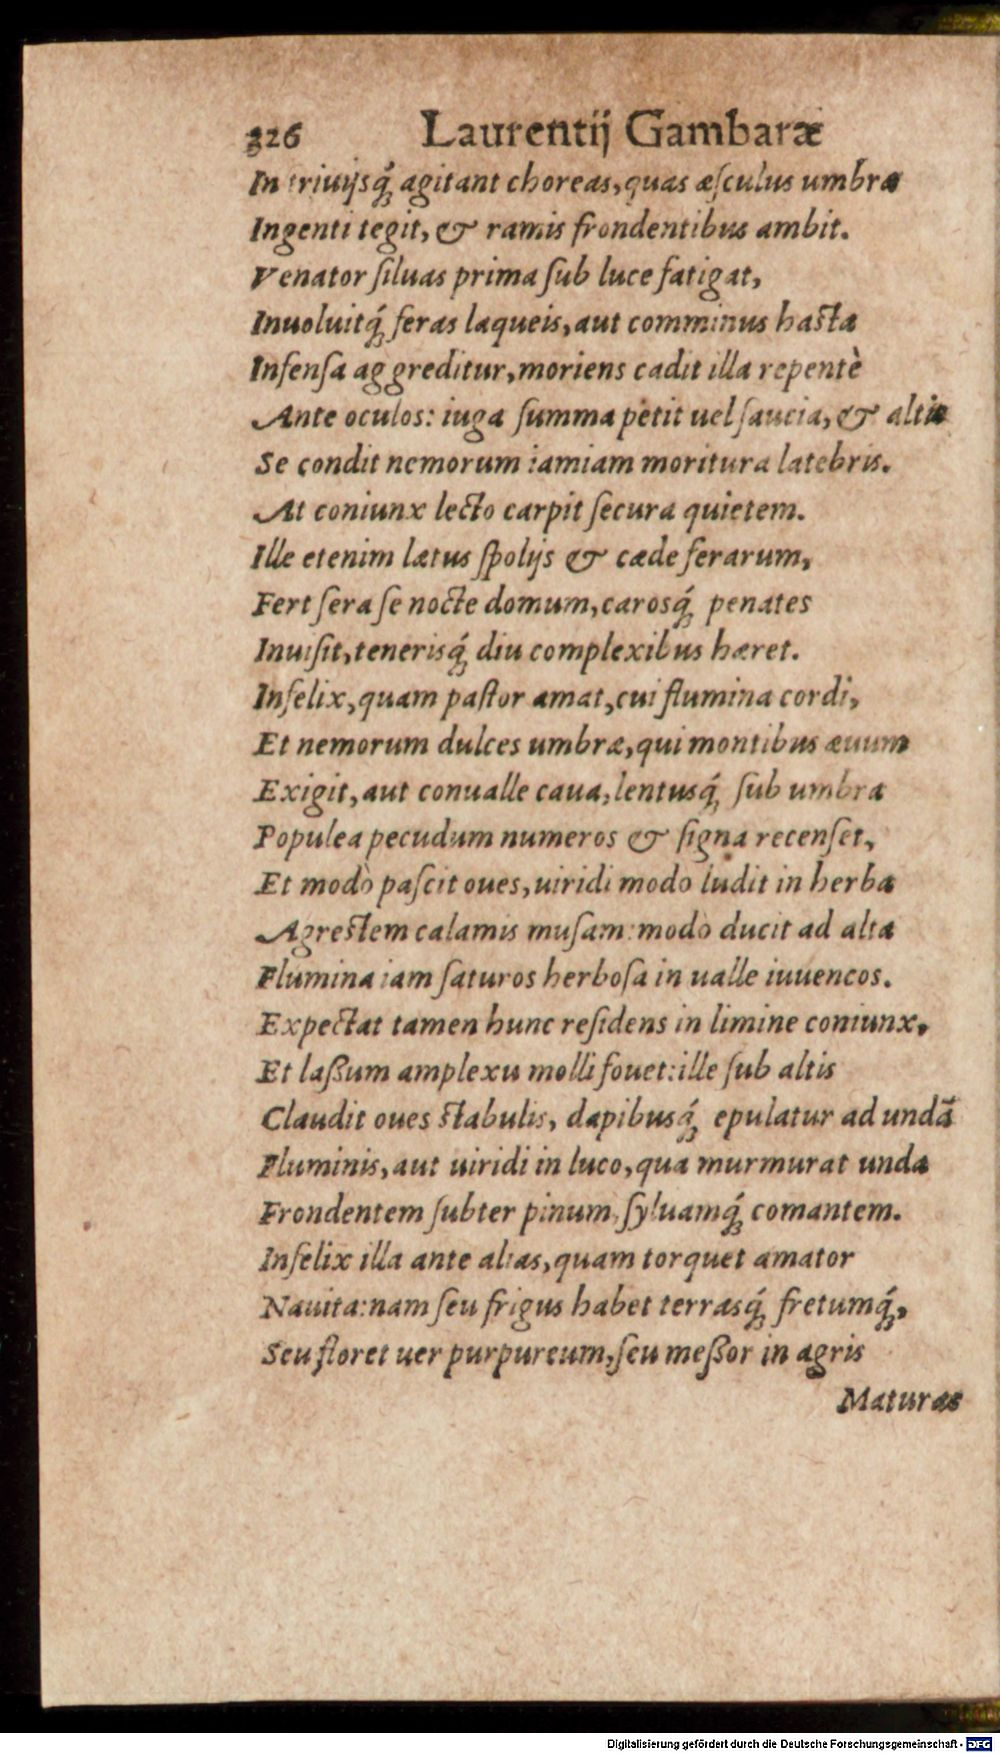 326 Laurentij Gambaræ
In triuijsq́; agitant choreas, quas æſculus umbra
Ingenti tegit, & ramis frondentibus ambit.
Venator ſiluas prima ſub luce fatigat,
Inuoluitq́; feras laqueis, aut comminus haſta
Infenſa aggreditur, moriens cadit illa repentè
Ante oculos: iuga ſumma petit uel ſaucia, & altis
Se condit nemorum iamiam moritura latebris.
At coniunx lecto carpit ſecura quietem.
Ille etenim lætus ſpolijs & cæde ferarum,
Fert ſera ſe nocte domum, carosq́; penates
Inuiſit, tenerisq́; diu complexibus hæret.
Infelix, quam paſtor amat, cui flumina cordi,
Et nemorum dulces umbræ, qui montibus æuum
Exigit, aut conualle caua, lentusq́; ſub umbra
Populea pecudum numeros & ſigna recenſet,
Et modò paſcit oues, uiridi modo ludit in herba
Agreſtem calamis muſam: modò ducit ad alta
Flumina iam ſaturos herboſa in ualle iuuencos.
Expectat tamen hunc reſidens in limine coniunx,
Et laßum amplexu molli fouet: ille ſub altis
Claudit oues ſtabulis, dapibusq́; epulatur ad undã
Fluminis, aut uiridi in luco, qua murmurat unda
Frondentem ſubter pinum, ſyluamq́; comantem.
Infelix illa ante alias, quam torquet amator
Nauita: nam ſeu frigus habet terrasq́; fretumq́;,
Seu floret uer purpureum, ſeu meßor in agris
Maturas
Digitalisierung gefördert durch die Deutsche Forschungsgemeinschaft - DFG